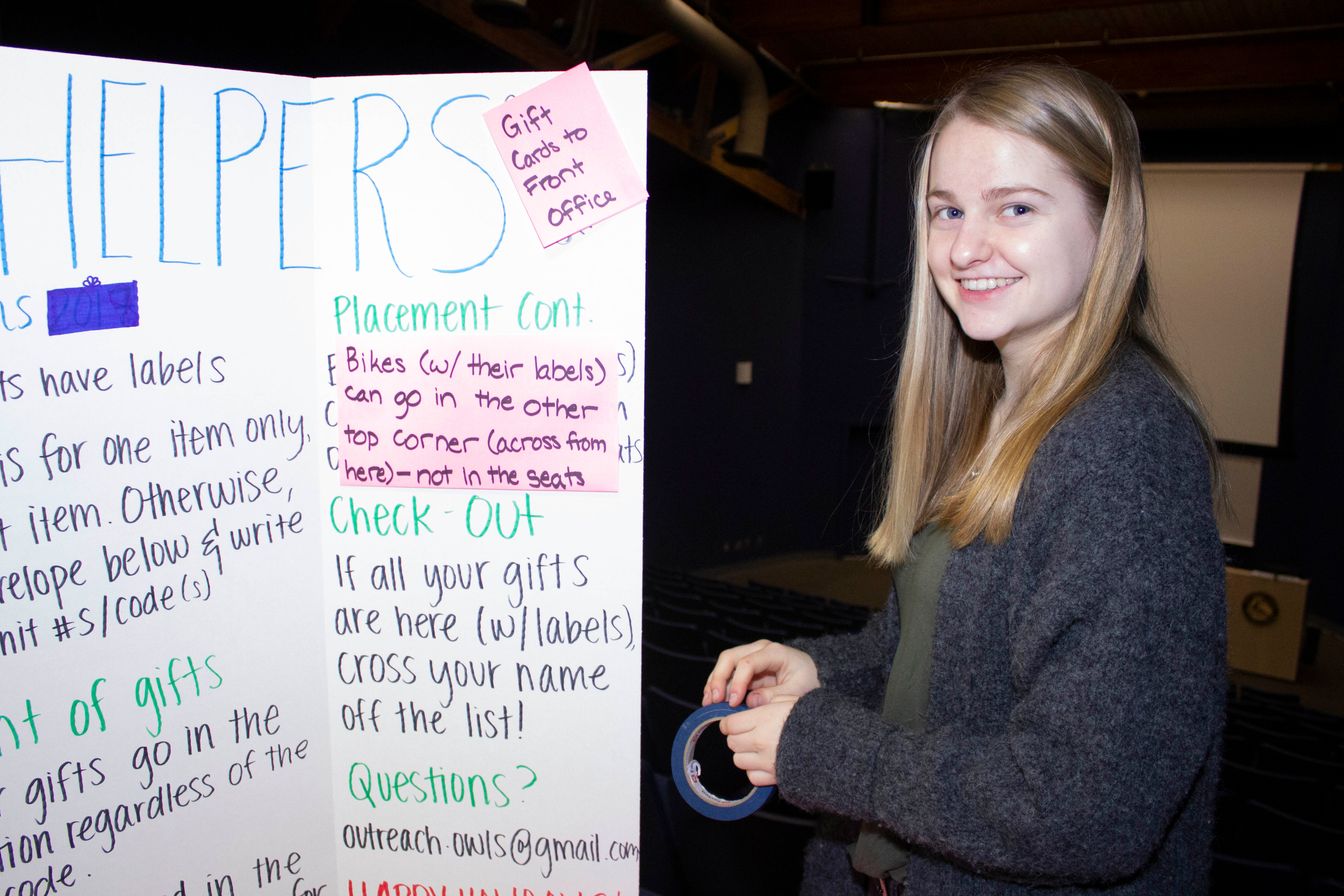 HELPERS
Gift
Cards to
Front
Office
2019
ts have labels
is for one item only,
t item. Otherwise,
velope below & write
nit #s/code(s)
nt of gifts
r gifts go in the
tion regardless of the
code.
d in the
for
Placement Cont.
Bikes (w/ their labels)
can go in the other
top corner (across from
here) - not in the seats
Check-Out
If all your gifts
are here (w/labels),
cross your name
off the list!
Questions?
outreach.owls@gmail.com
HAPPY HOLIDAYS!